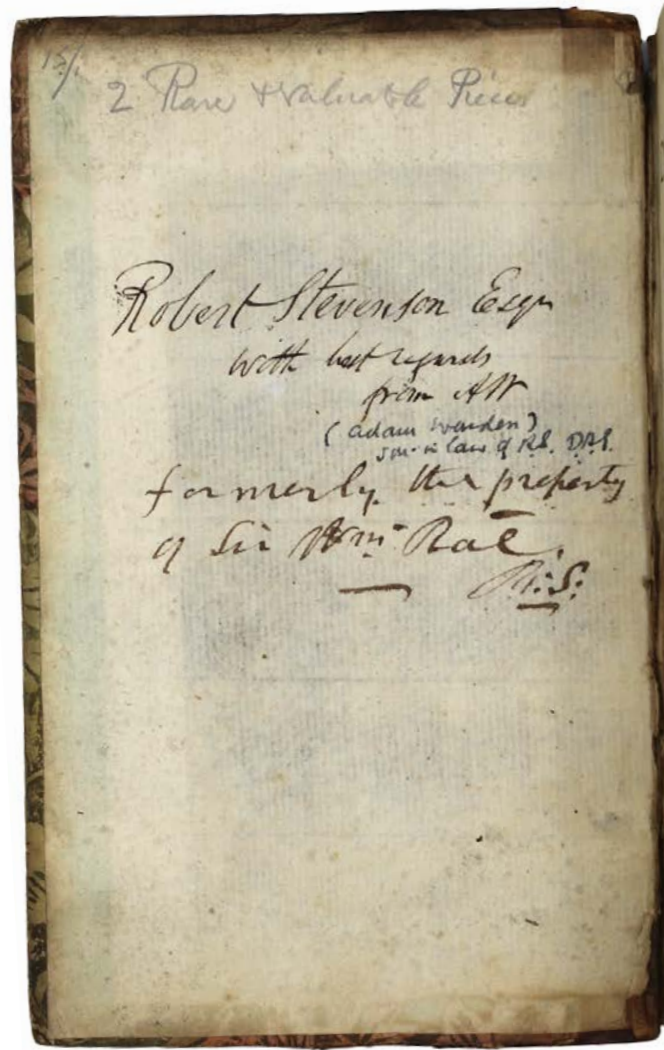 15/
2 Rare & Valuable Pieces
Robert Stevenson Esqr
with best regards
from AW
(Adam Warden)
son-in law of R.S. D.A.S.
formerly the property
of Sir Wm. Rae.
R: S: